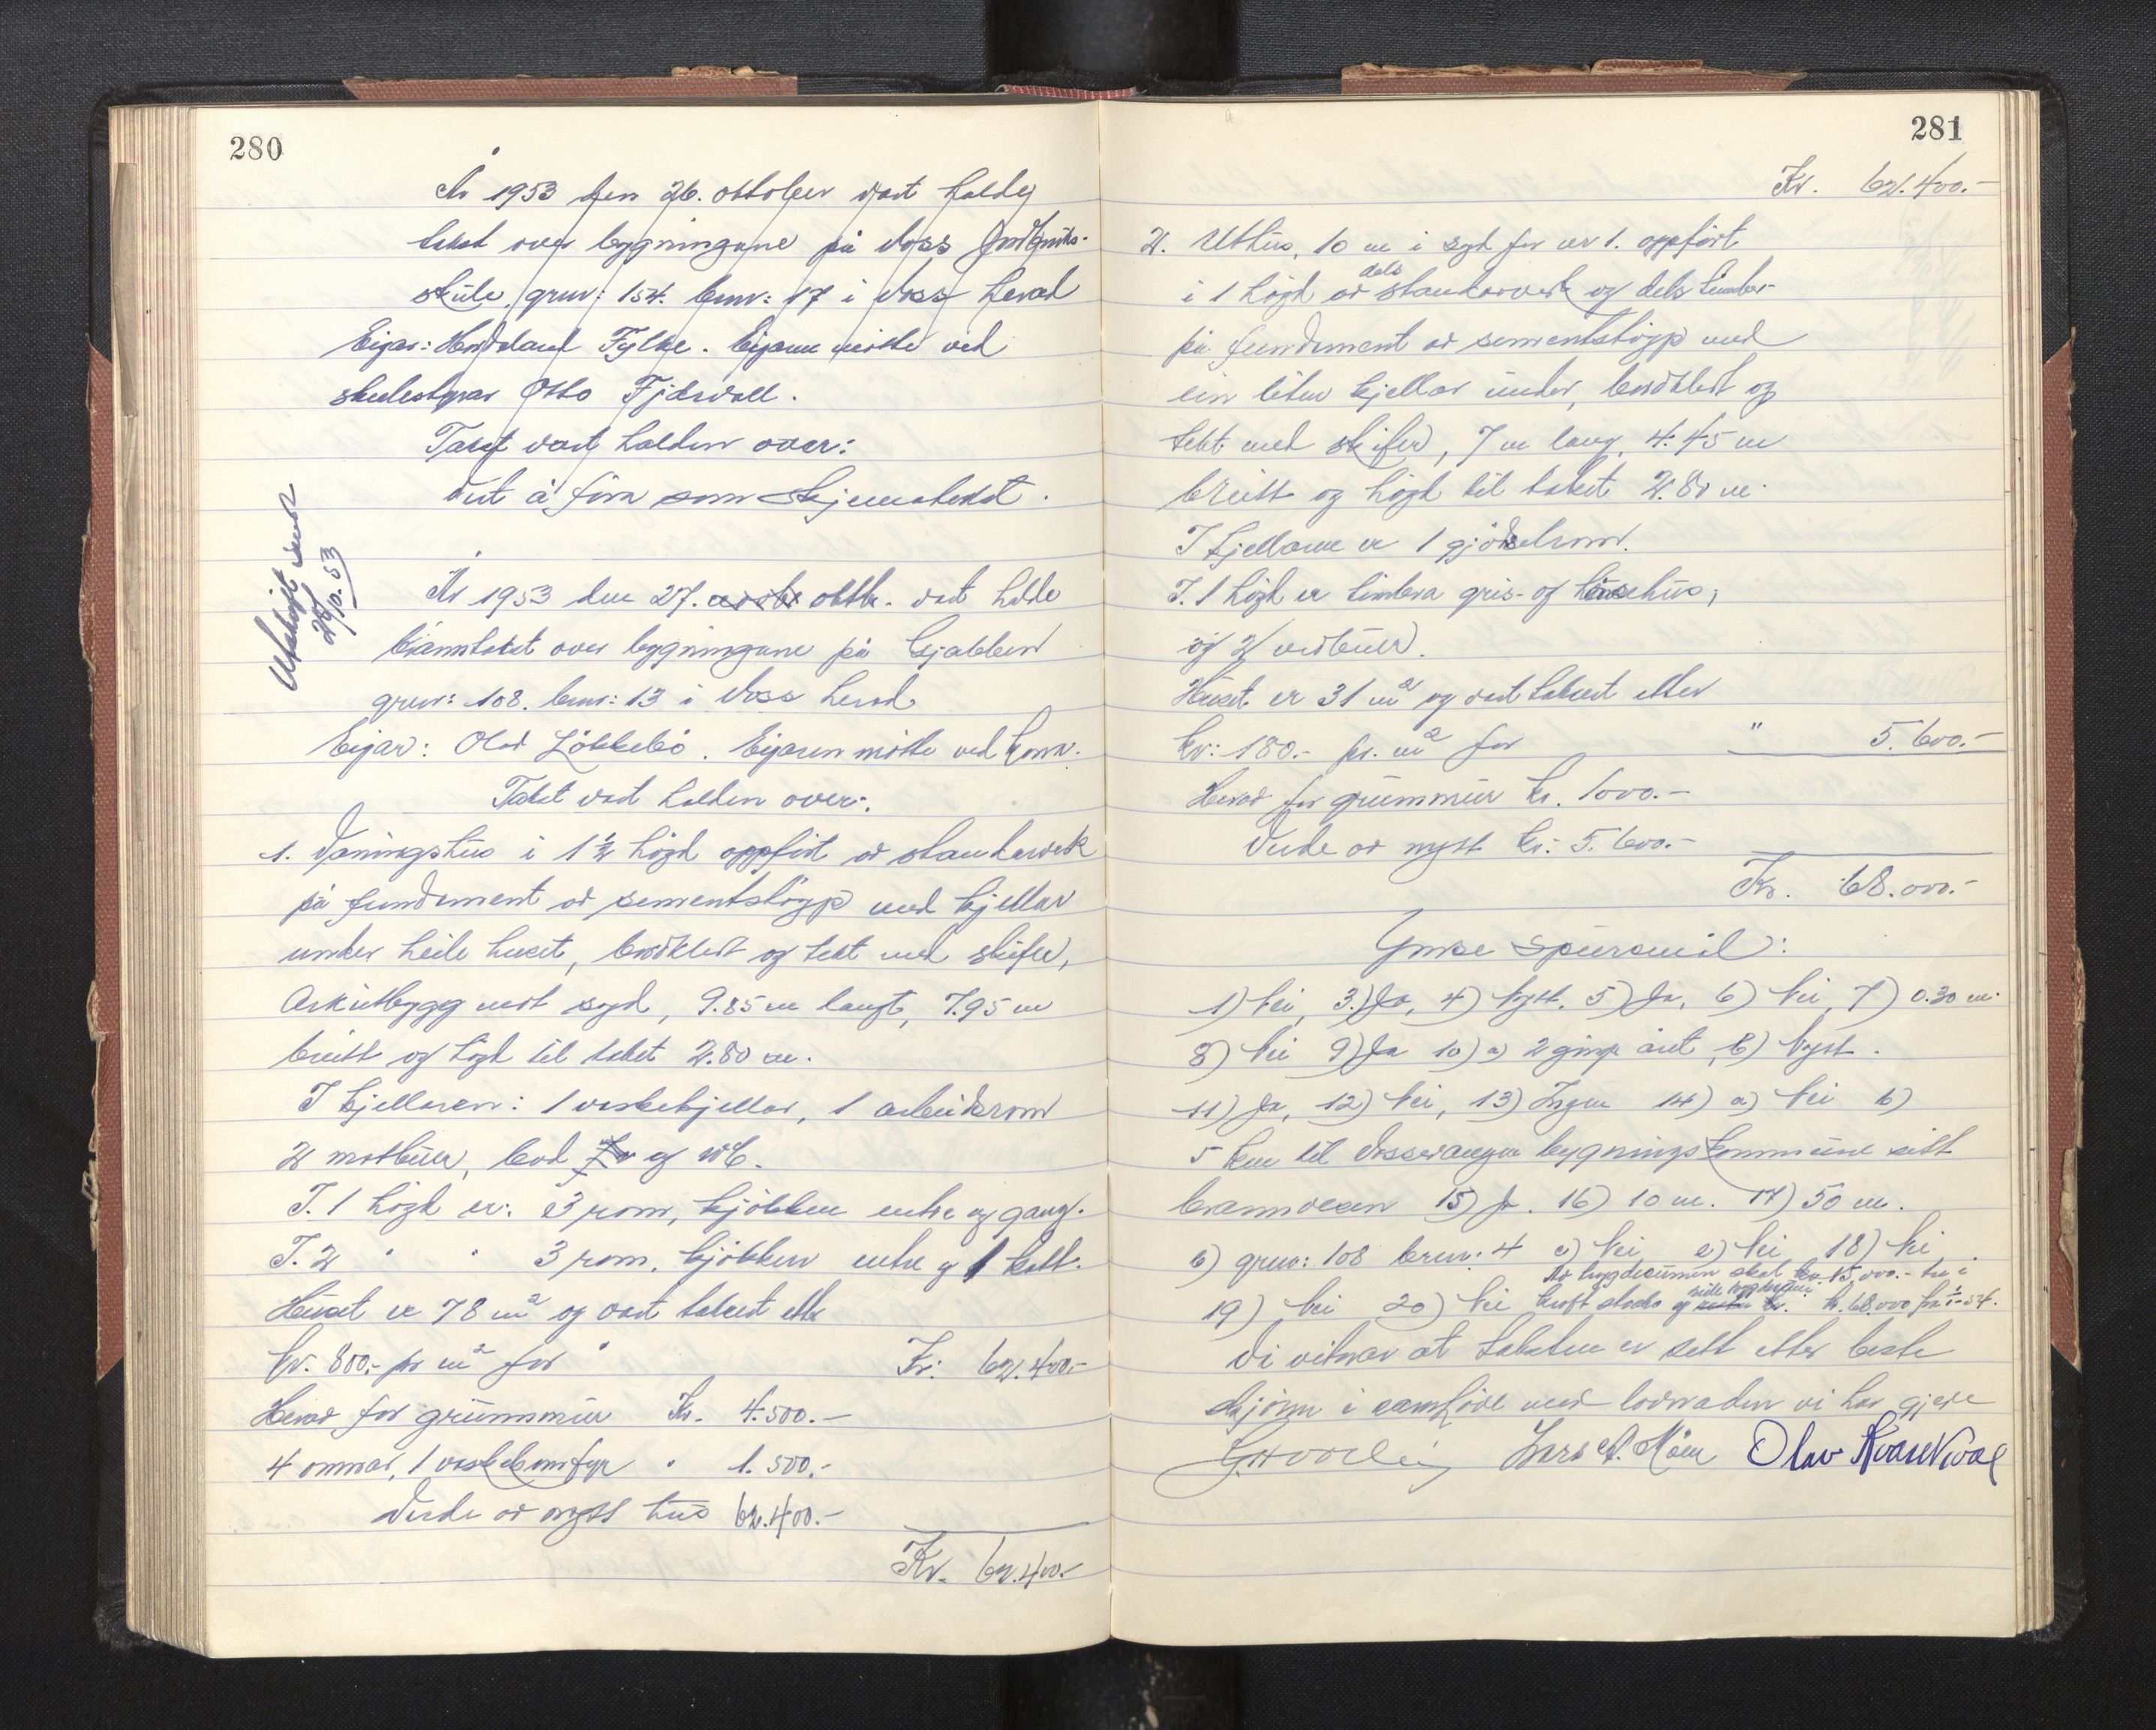 280
År 1953 den 26. oktober vart halde
takst over bygningane på Voss Jordbruks-
skule gnr: 154. bnr: 17 i Voss herad
Eigar: Hordaland Fylke. Eigaren møtte ved
skulestyrar Otto Fjærvoll.
Takst vart halden over:
Vert å föra som skjematakst.
Utskrift sendt
28/10.53
År 1953 den 27. oktbr. vart halde
branntakst over bygningane på Gjabben
gnr: 108. bnr: 13 i Voss herad
Eigar: Olav Lökkebö. Eigaren møtte ved
Takst vart halden over:
1. Våningshus i 1 1/2 högd oppfört av standarverk
på fundament av sementstöyp med kjellar
under heile huset, bordkledt og tekt med skifer,
Arkutbygg mot syd, 9.85 m langt, 7.95 m
breitt og högd til taket 2.80 m.
I kjellaren: 1 vaskekjellar, 1 arbeidsrom
2 matbuer, bod og WC.
I. 1 högd er: 3 rom, kjökken entre og gang.
I. 2 " " 3 rom, kjökken entre og 1 kott.
Huset er 78 m2 og vart taksert etter
kr. 800.- pr m2 for Kr: 62.400.-
Herav for grunnmur Kr. 4.500.-
4 omnar, 1 vaskekomfyr " 1.500.-
Verde av nytt hus 62.400.-
Kr. 62.400.-
281
Kr. 62.400.-
2. Uthus, 10 m i syd for nr 1. oppfört
i 1 högd av dels standarverk og dels timber
på fundament av sementstöyp med
ein liten kjellar under, bordkledt og
tekt med skifer, 7 m lang, 4.45 m
breitt og högd til taket 2.80 m.
I kjellaren er 1 gjödselrom.
I. 1 högd er timbra gris- og hönsehus,
og 2 vedbuer.
Huset er 31 m2 og vart taksert etter
kr: 180.- pr. m2 for " 5.600.-
Herav for grunnmur kr. 1000.-
Verde av nytt kr: 5.600.-
Kr. 68.000.-
Ymse spursmål:
1) Nei, 3.) Ja, 4) Nytt. 5) Ja, 6) Nei, 7) 0.30 m.
8) Nei 9) Ja 10) a) 2 ging. året, b) Nytt.
11) Ja, 12) Nei, 13) Ingen 14) a) Nei b)
5 km til Vossevangen bygningskommune sitt
brannvesen 15) Ja. 16) 10 m. 17) 50 m.
b) gnr: 108 bnr: 4 c) Nei e) Nei 18) Nei.
Av bygdesumen skal kr. 15.000.- tre i
19) Nei 20) Nei kraft straks og kr. 68.000 frå 1/1-54.
Vi vitnar at taksten er sett etter beste
skjönn i samhöve med lovnaden vi har gjeve
Lars Olav